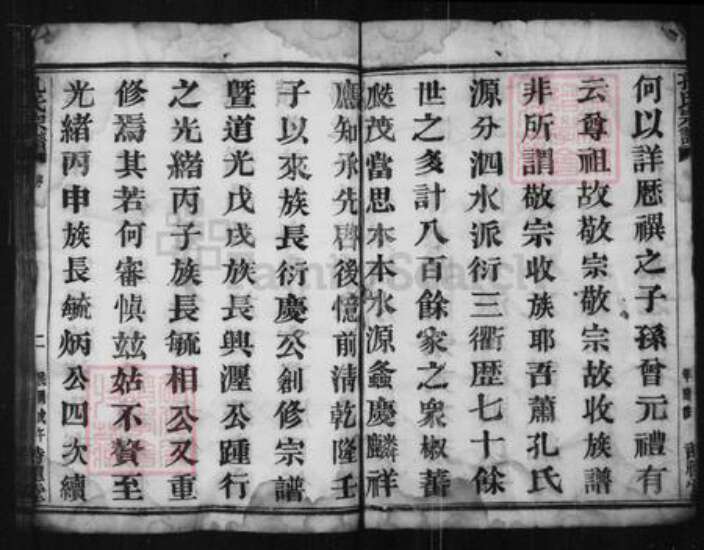 何以詳歷禩之子孫曾元禮有
云尊祖故敬宗敬宗故收族譜
非所謂敬宗收族耶吾蕭孔氏
源分泗水派衍三衢歷七十餘
世之多計八百餘家之衆椒蕃
瓞茂當思木本水源螽慶麟祥
應知承先啓後憶前清乾隆壬
子以來族長衍慶公創修宗譜
暨道光戊戌族長興溼公踵行
之光緒丙子族長毓相公又重
修焉其若何審愼玆姑不贅至
光緒丙申族長毓炳公四次續
二
FamilySearch